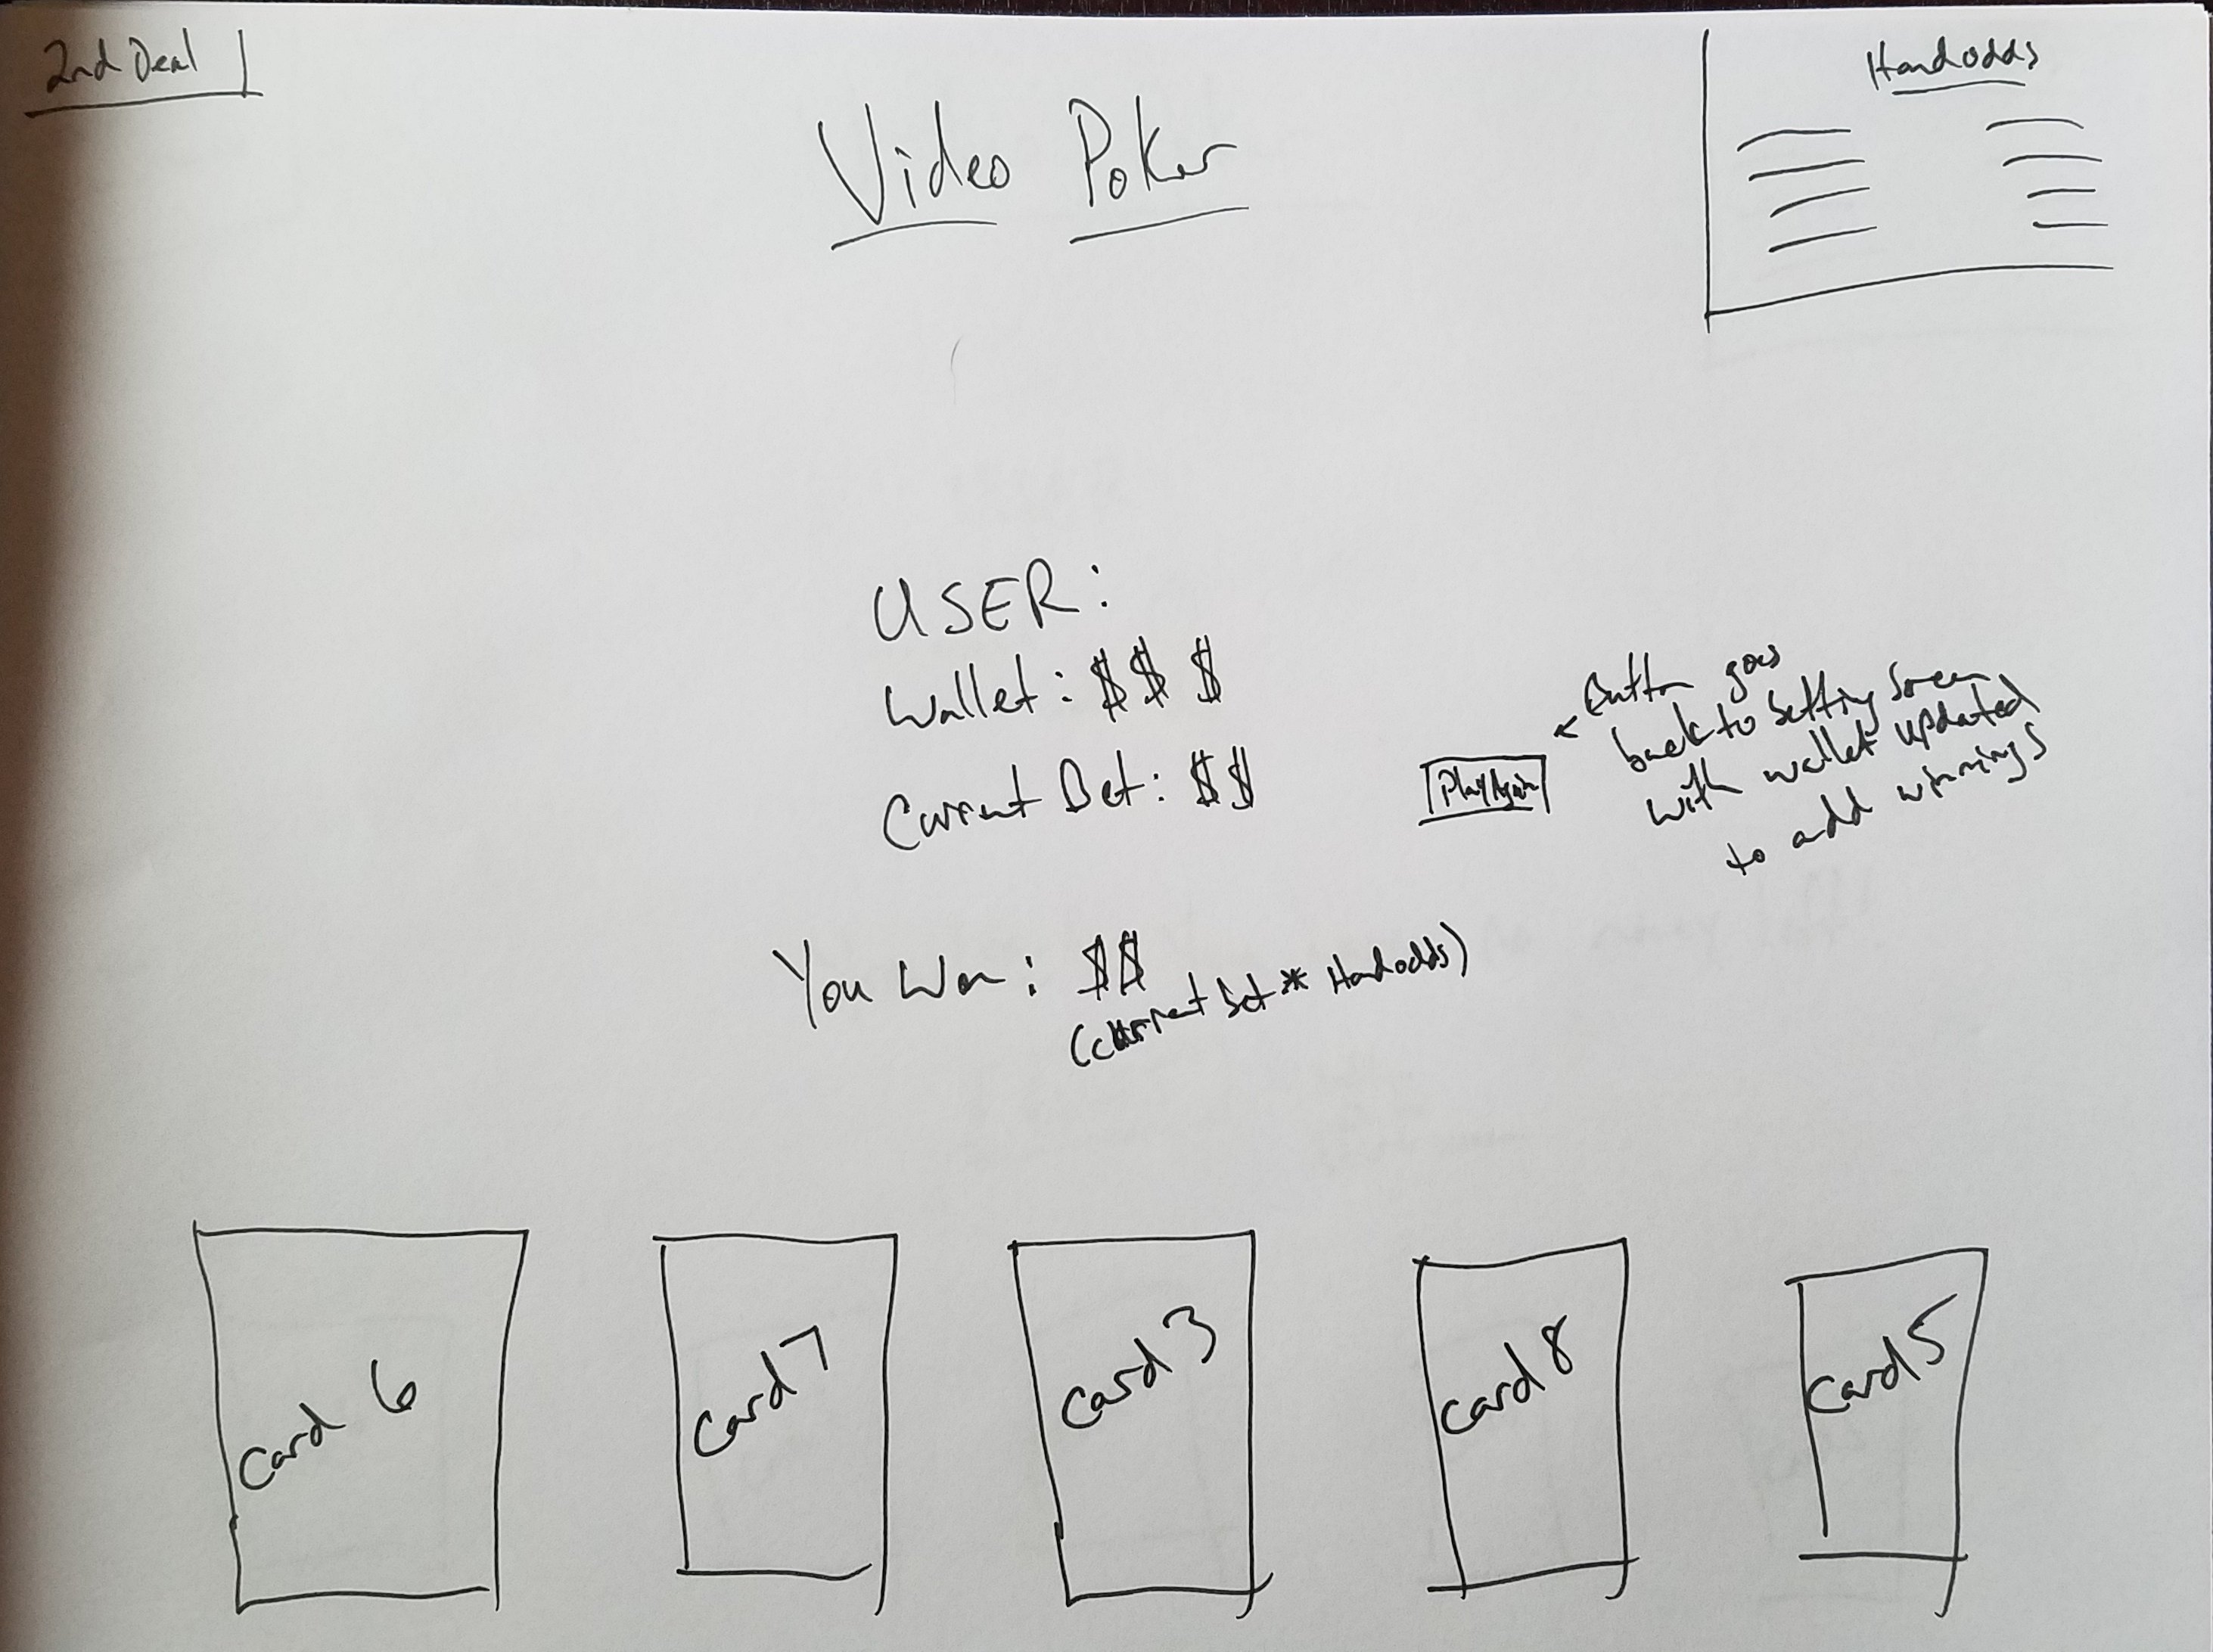 2nd Deal
Handodds
Video Poker
USER:
Wallet: $$ $
Current Bet: $$
Play Again
< Button goes
back to betting screen
with wallet updated
to add winnings
You Won: $$
(current bet * Handodds)
Card 6
Card 7
Card 3
Card 8
Card 5